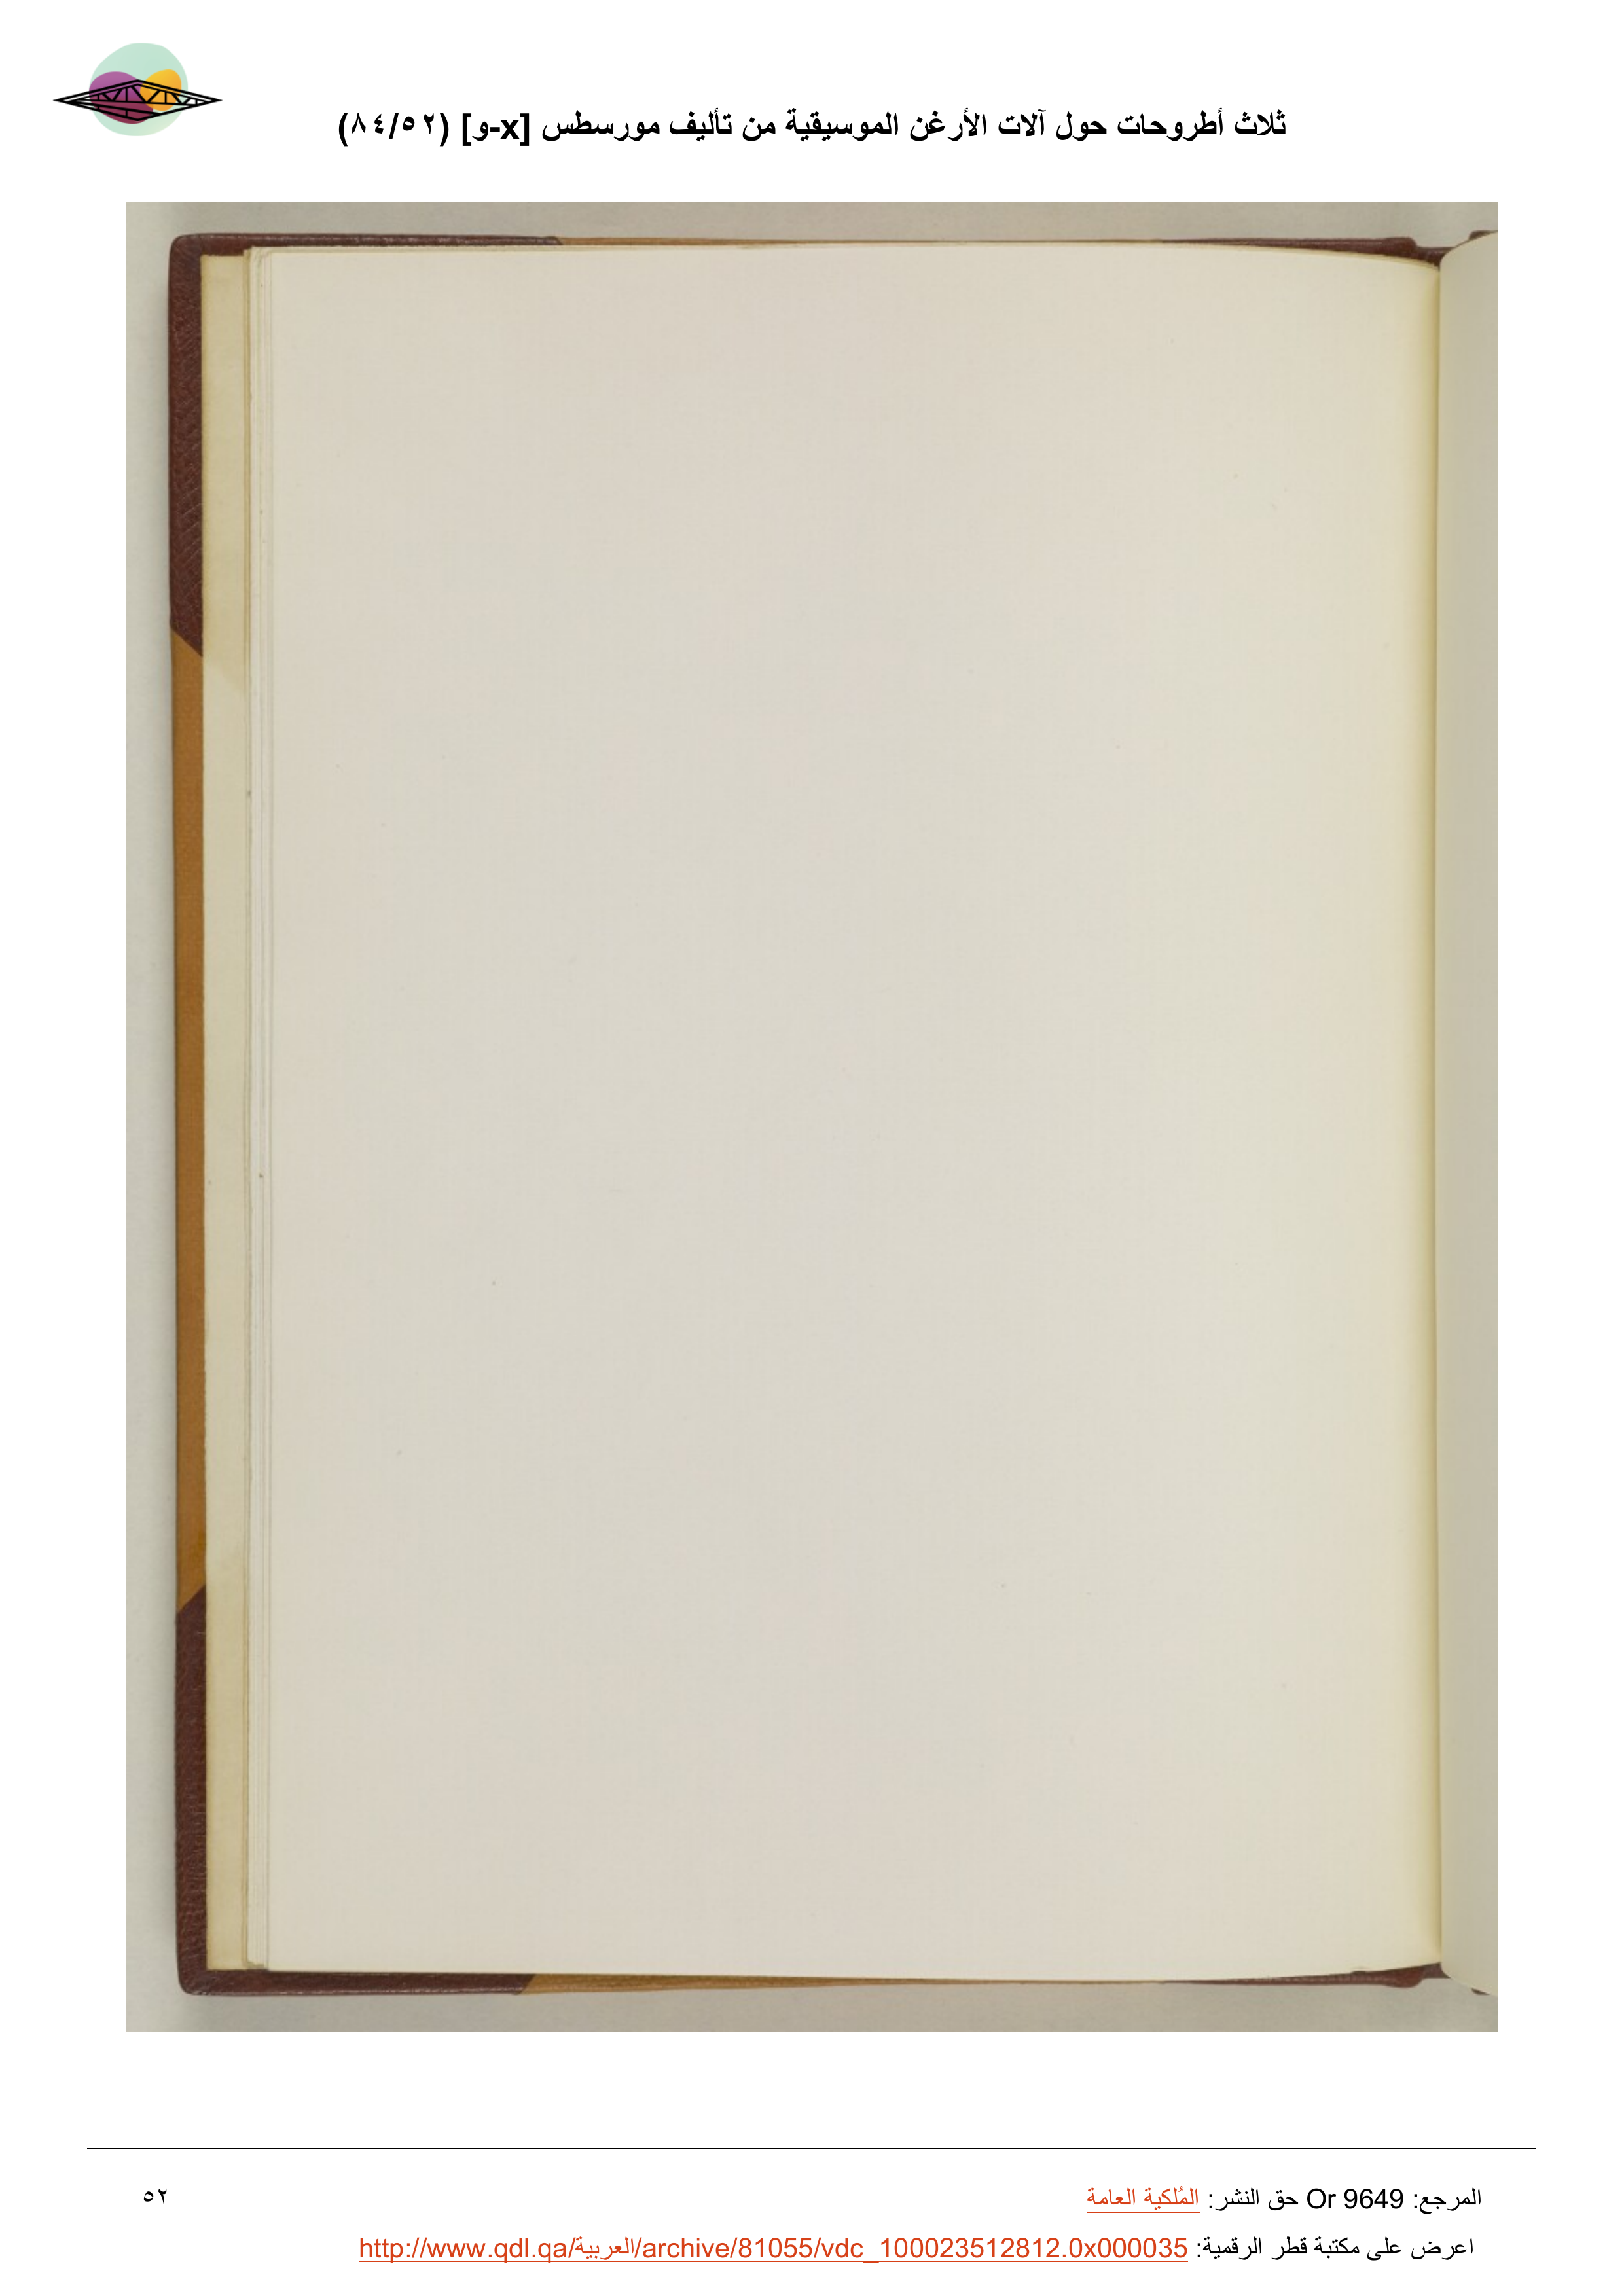 ثلاث أطروحات حول آلات الأرغن الموسيقية من تأليف مورسطس [x-و] (٨٤/٥٢)
المرجع: Or 9649 حق النشر: المُلكية العامة
٥٢
اعرض على مكتبة قطر الرقمية: http://www.qdl.qa/العربية/archive/81055/vdc_100023512812.0x000035